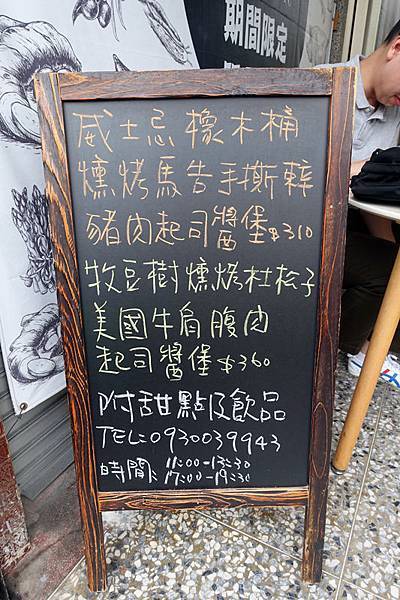 期間限定
威士忌橡木桶
燻烤馬告手撕粹
豬肉起司醬堡$310
牧豆樹燻烤杜松子
美國牛肩腹肉
起司醬堡$360
附甜點及飲品
TEL:0930039943
時間、11:00-13:30
17:00-19:30